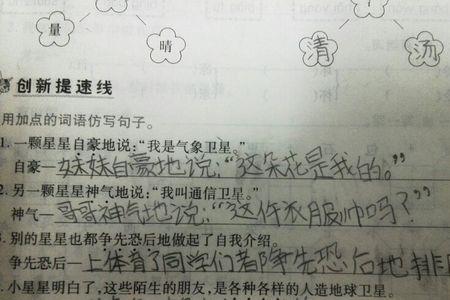 量
晴
清
汤
创新提速线
用加点的词语仿写句子。
1. 一颗星星自豪地说:“我是气象卫星。”
自豪—妹妹自豪地说:“这朵花是我的。”
2. 另一颗星星神气地说:“我叫通信卫星。”
神气—哥哥神气地说:“这件衣服帅吗?”
3. 别的星星也都争先恐后地做起了自我介绍。
争先恐后—上体育了同学们都争先恐后地排
4. 小星星明白了,这些陌生的朋友,是各种各样的人造地球卫星。